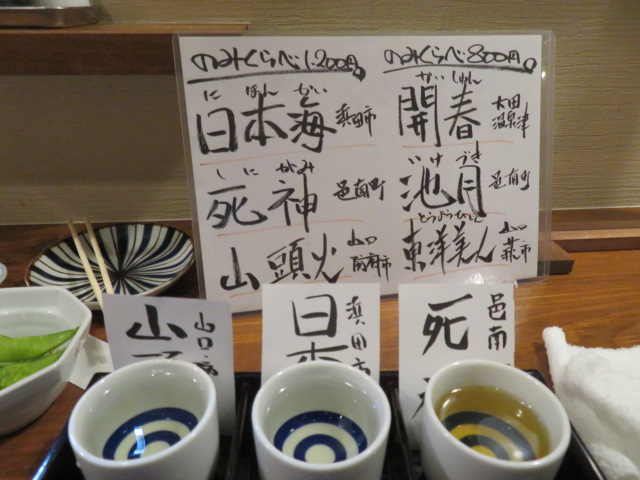 のみくらべ1,200円
にほんかい
日本海 浜田市
しにがみ
死神 邑南町
山頭火 山口防府市
のみくらべ800円
かいしゅん
開春 大田温泉津
いけづき
池月 邑南町
とうようびじん
東洋美人 山口萩市
山 山口
日本 浜田市
死 邑南